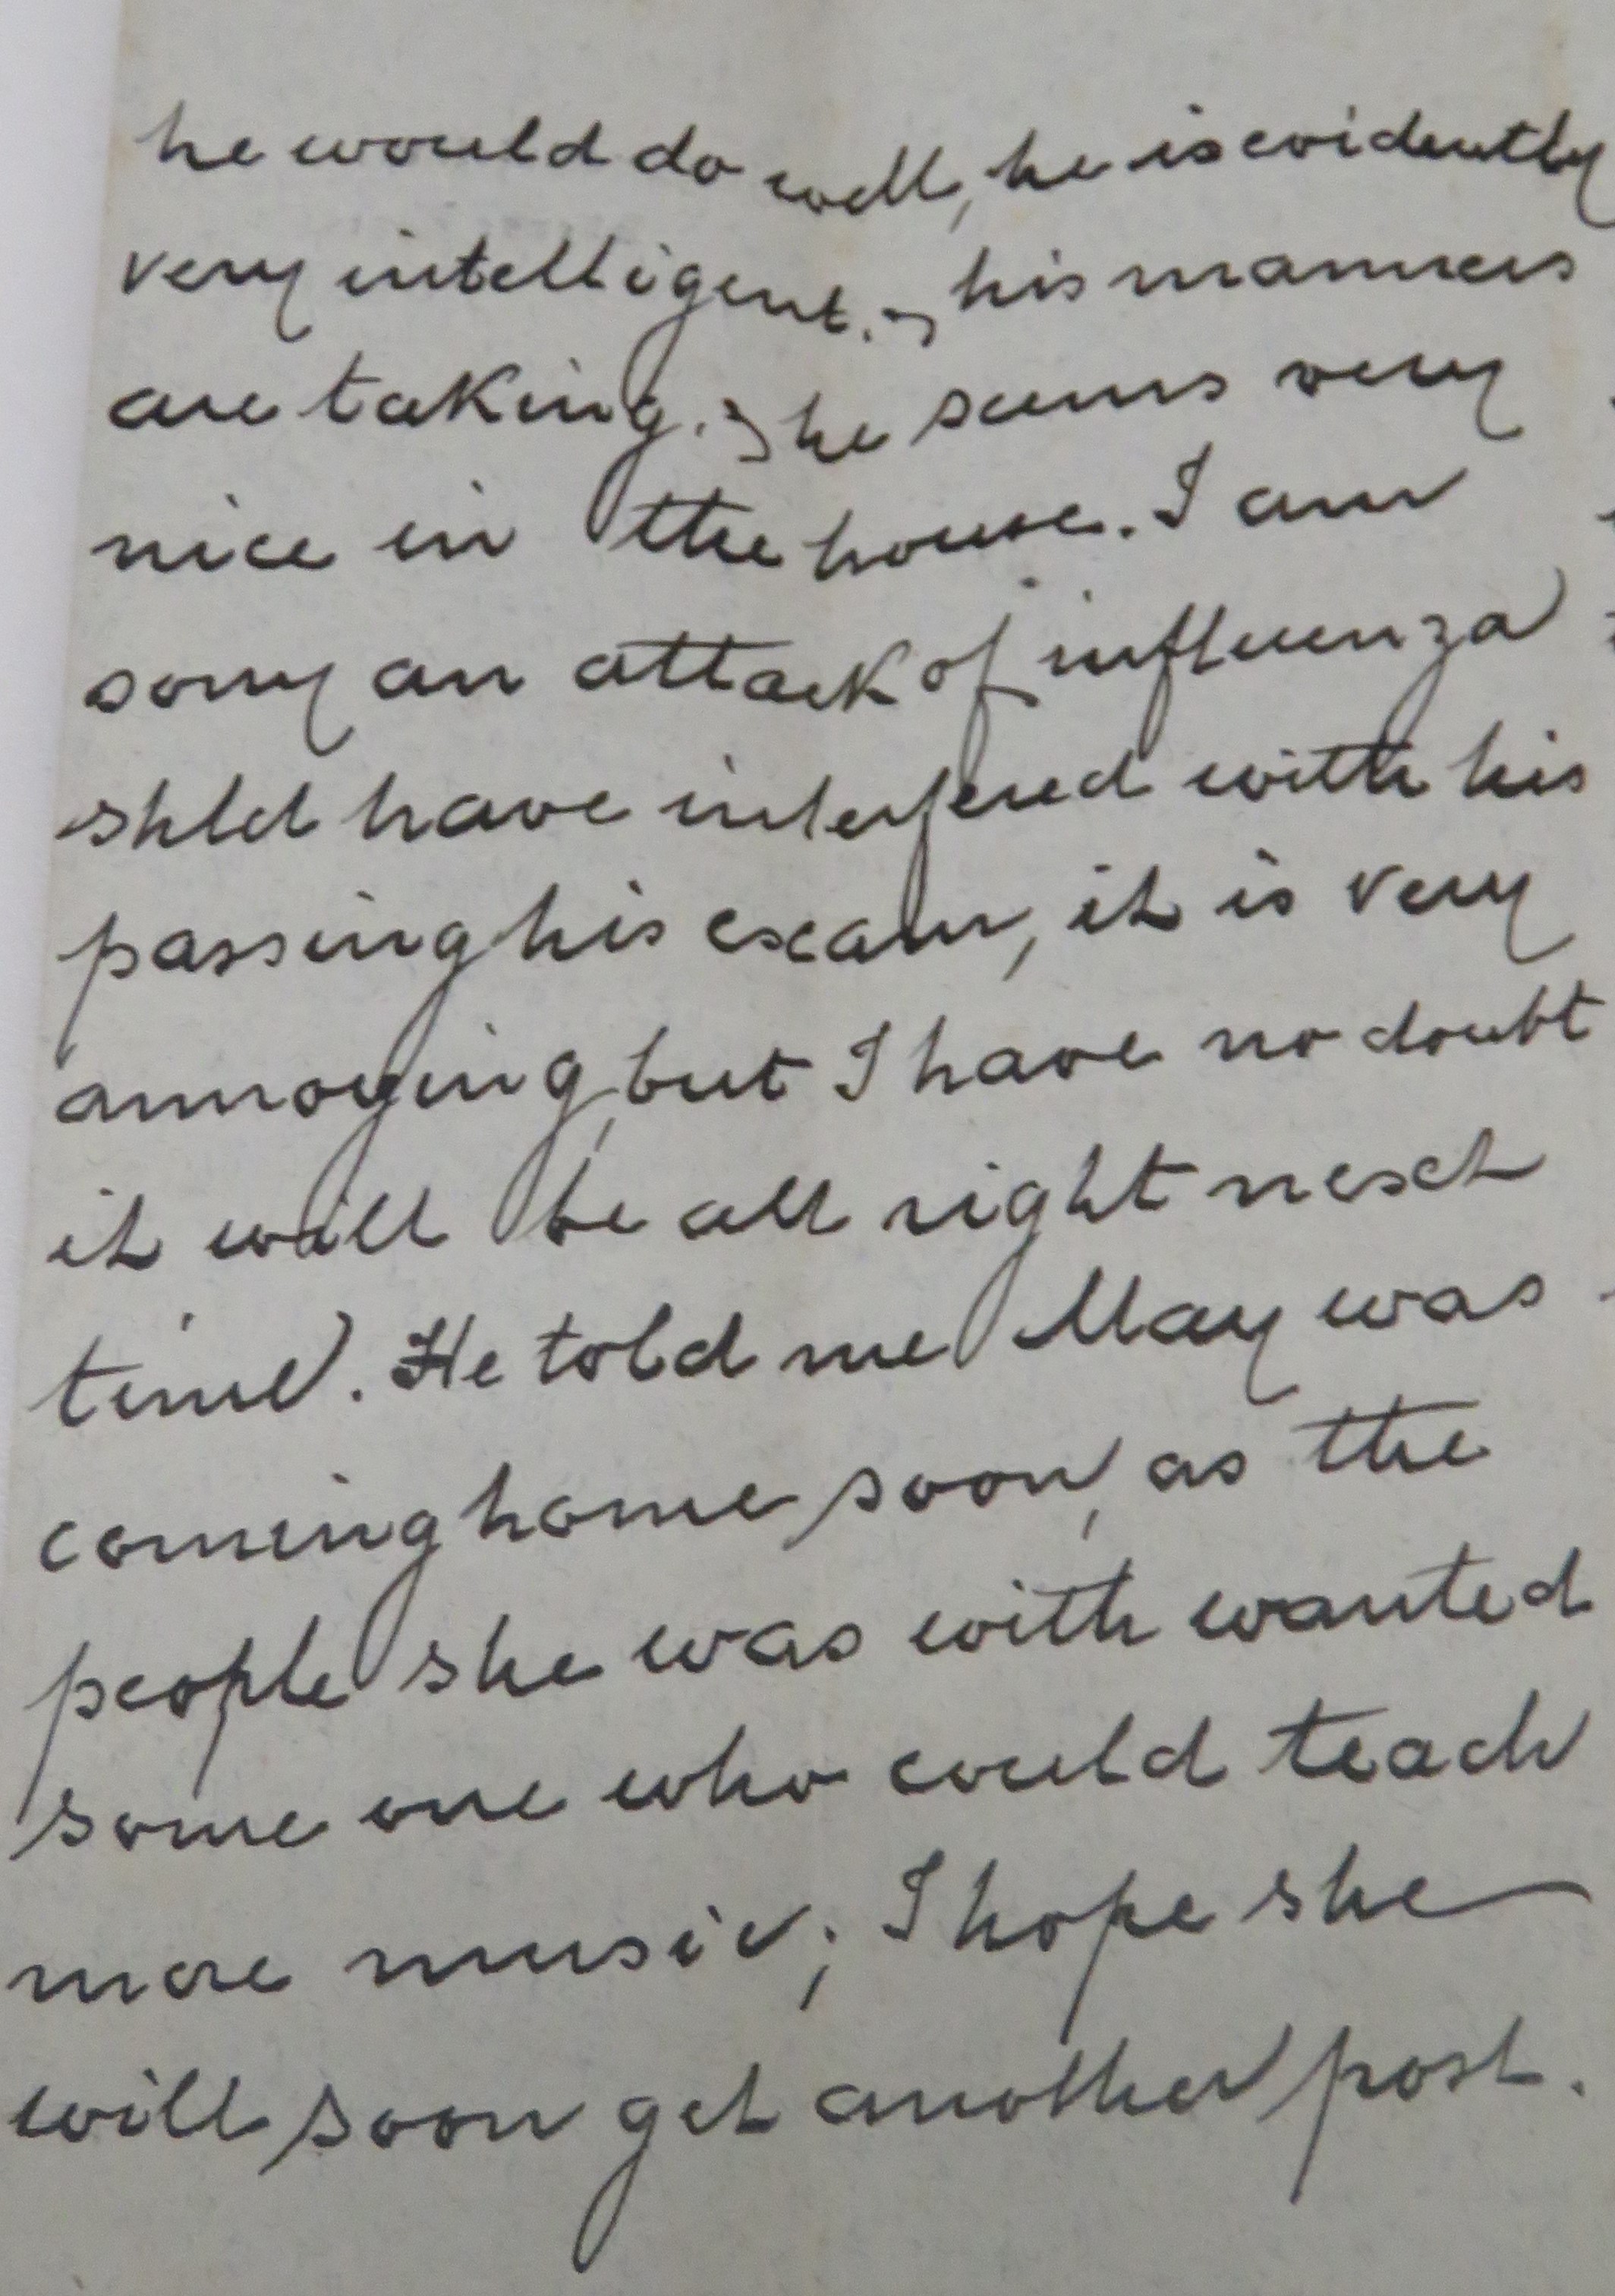 he would do well, he is evidently
very intelligent. & his manners
are taking. & he seems very
nice in the house. I am
sorry an attack of influenza
shld have interfered with his
passing his exam, it is very
annoying, but I have no doubt
it will be all right next
time. He told me May was
coming home soon, as the
people she was with wanted
some one who could teach
more music; I hope she
will soon get another post.